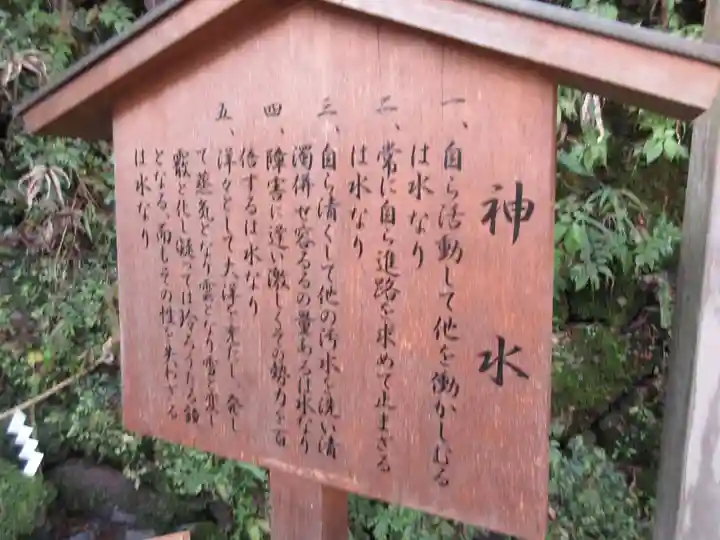 神水
一、自ら活動して他を働かしむる
は水なり
二、常に自ら進路を求めて止まざる
は水なり
三、自ら清くして他の汚水を洗い清
濁併せ容るるの量あるは水なり
四、障害に逢い激しくその勢力を百
倍するは水なり
五、洋々として大洋を充たし 発し
て蒸気となり雲となり雪と変し
霰と化し凝っては玲ろうたる鏡
となる、而もその性を失わざる
は水なり